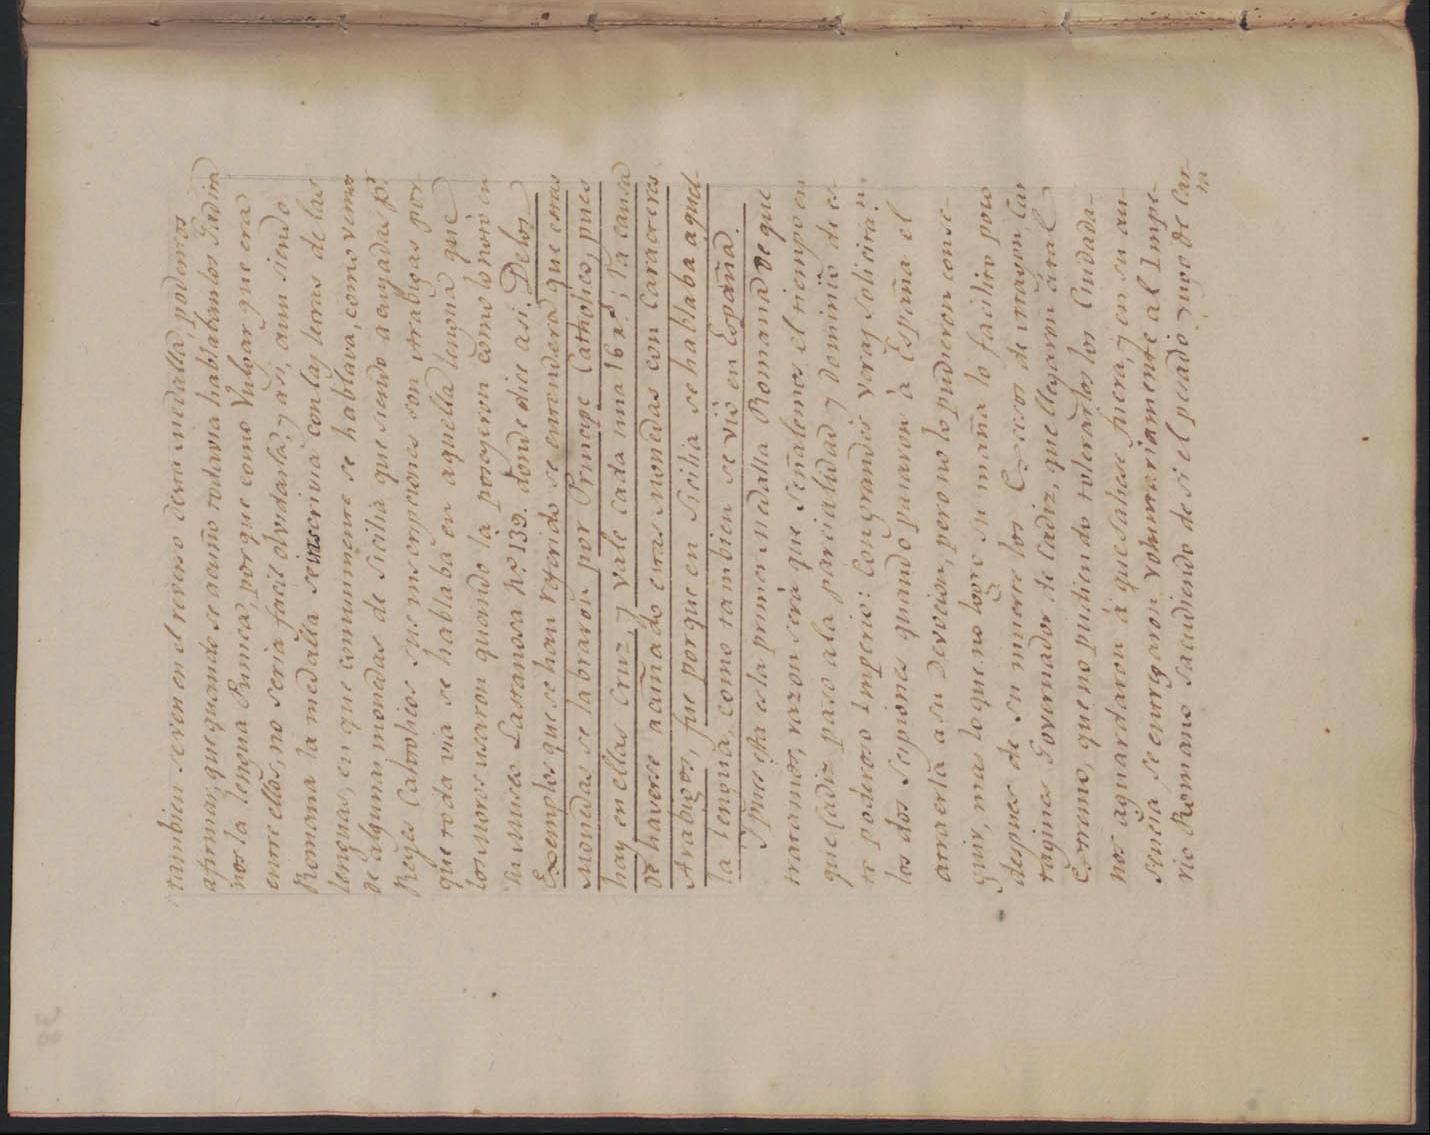 tambien se ve en el reverso de una medalla, podemos
afirmar, que quando se acuño todavia hablaban los Gadita
nos la lengua Punica, porque como Vulgar que era
entre ellos, no seria facil olvidarla; y asi, aun siendo
Romana la medalla se inscrivia con las letras de las
lenguas, en que comunmente se hablava, como vemos
de algunas monedas de Sicilia que siendo acuñadas pr.
Reyes Catholicos sus inscripciones son Arabigas por-
que toda via se hablaba en aquella lengua que
los Moros usaron quando la poseyeron como lo noto en
su Museo Lastanosa No. 132. donde dice asi: De los
Exemplos que se han referido se entenderà que estas
Monedas se labraron por Principe Catholico, pues
hay en ellas Cruz, y vale cada una 16 rs.; la causa
de haverse acuñado estas Monedas con Caracteres
Arabigos, fue porque en Sicilia se hablaba aquel-
la lengua, como tambien se viò en España.
Y pues esta es la primer Medalla Romana de que
tratamos, razon serà que señalemos el tiempo en
que Cadiz paso a la parcialidad y Dominio de es-
te poderoso Imperio: Con grandes veras solicitarn.
los dos Scipiones quando pasaron à España el
atraerla a su Devocion, pero no lo pudieron conse-
guir, mas lo que no logro su maña lo facilito poco
despues de su muerte los Excesos de Magon Car
tagines Governador de Cadiz, que llegaron à tal
Extremo, que no pudiendo tolerarlos los Ciudada-
nos aguardaron à que saliese fuera, y en su au-
sencia, se entregaron voluntariamente al Impe-
rio Romano sacudiendo de si el pesado yugo de Car-
ta